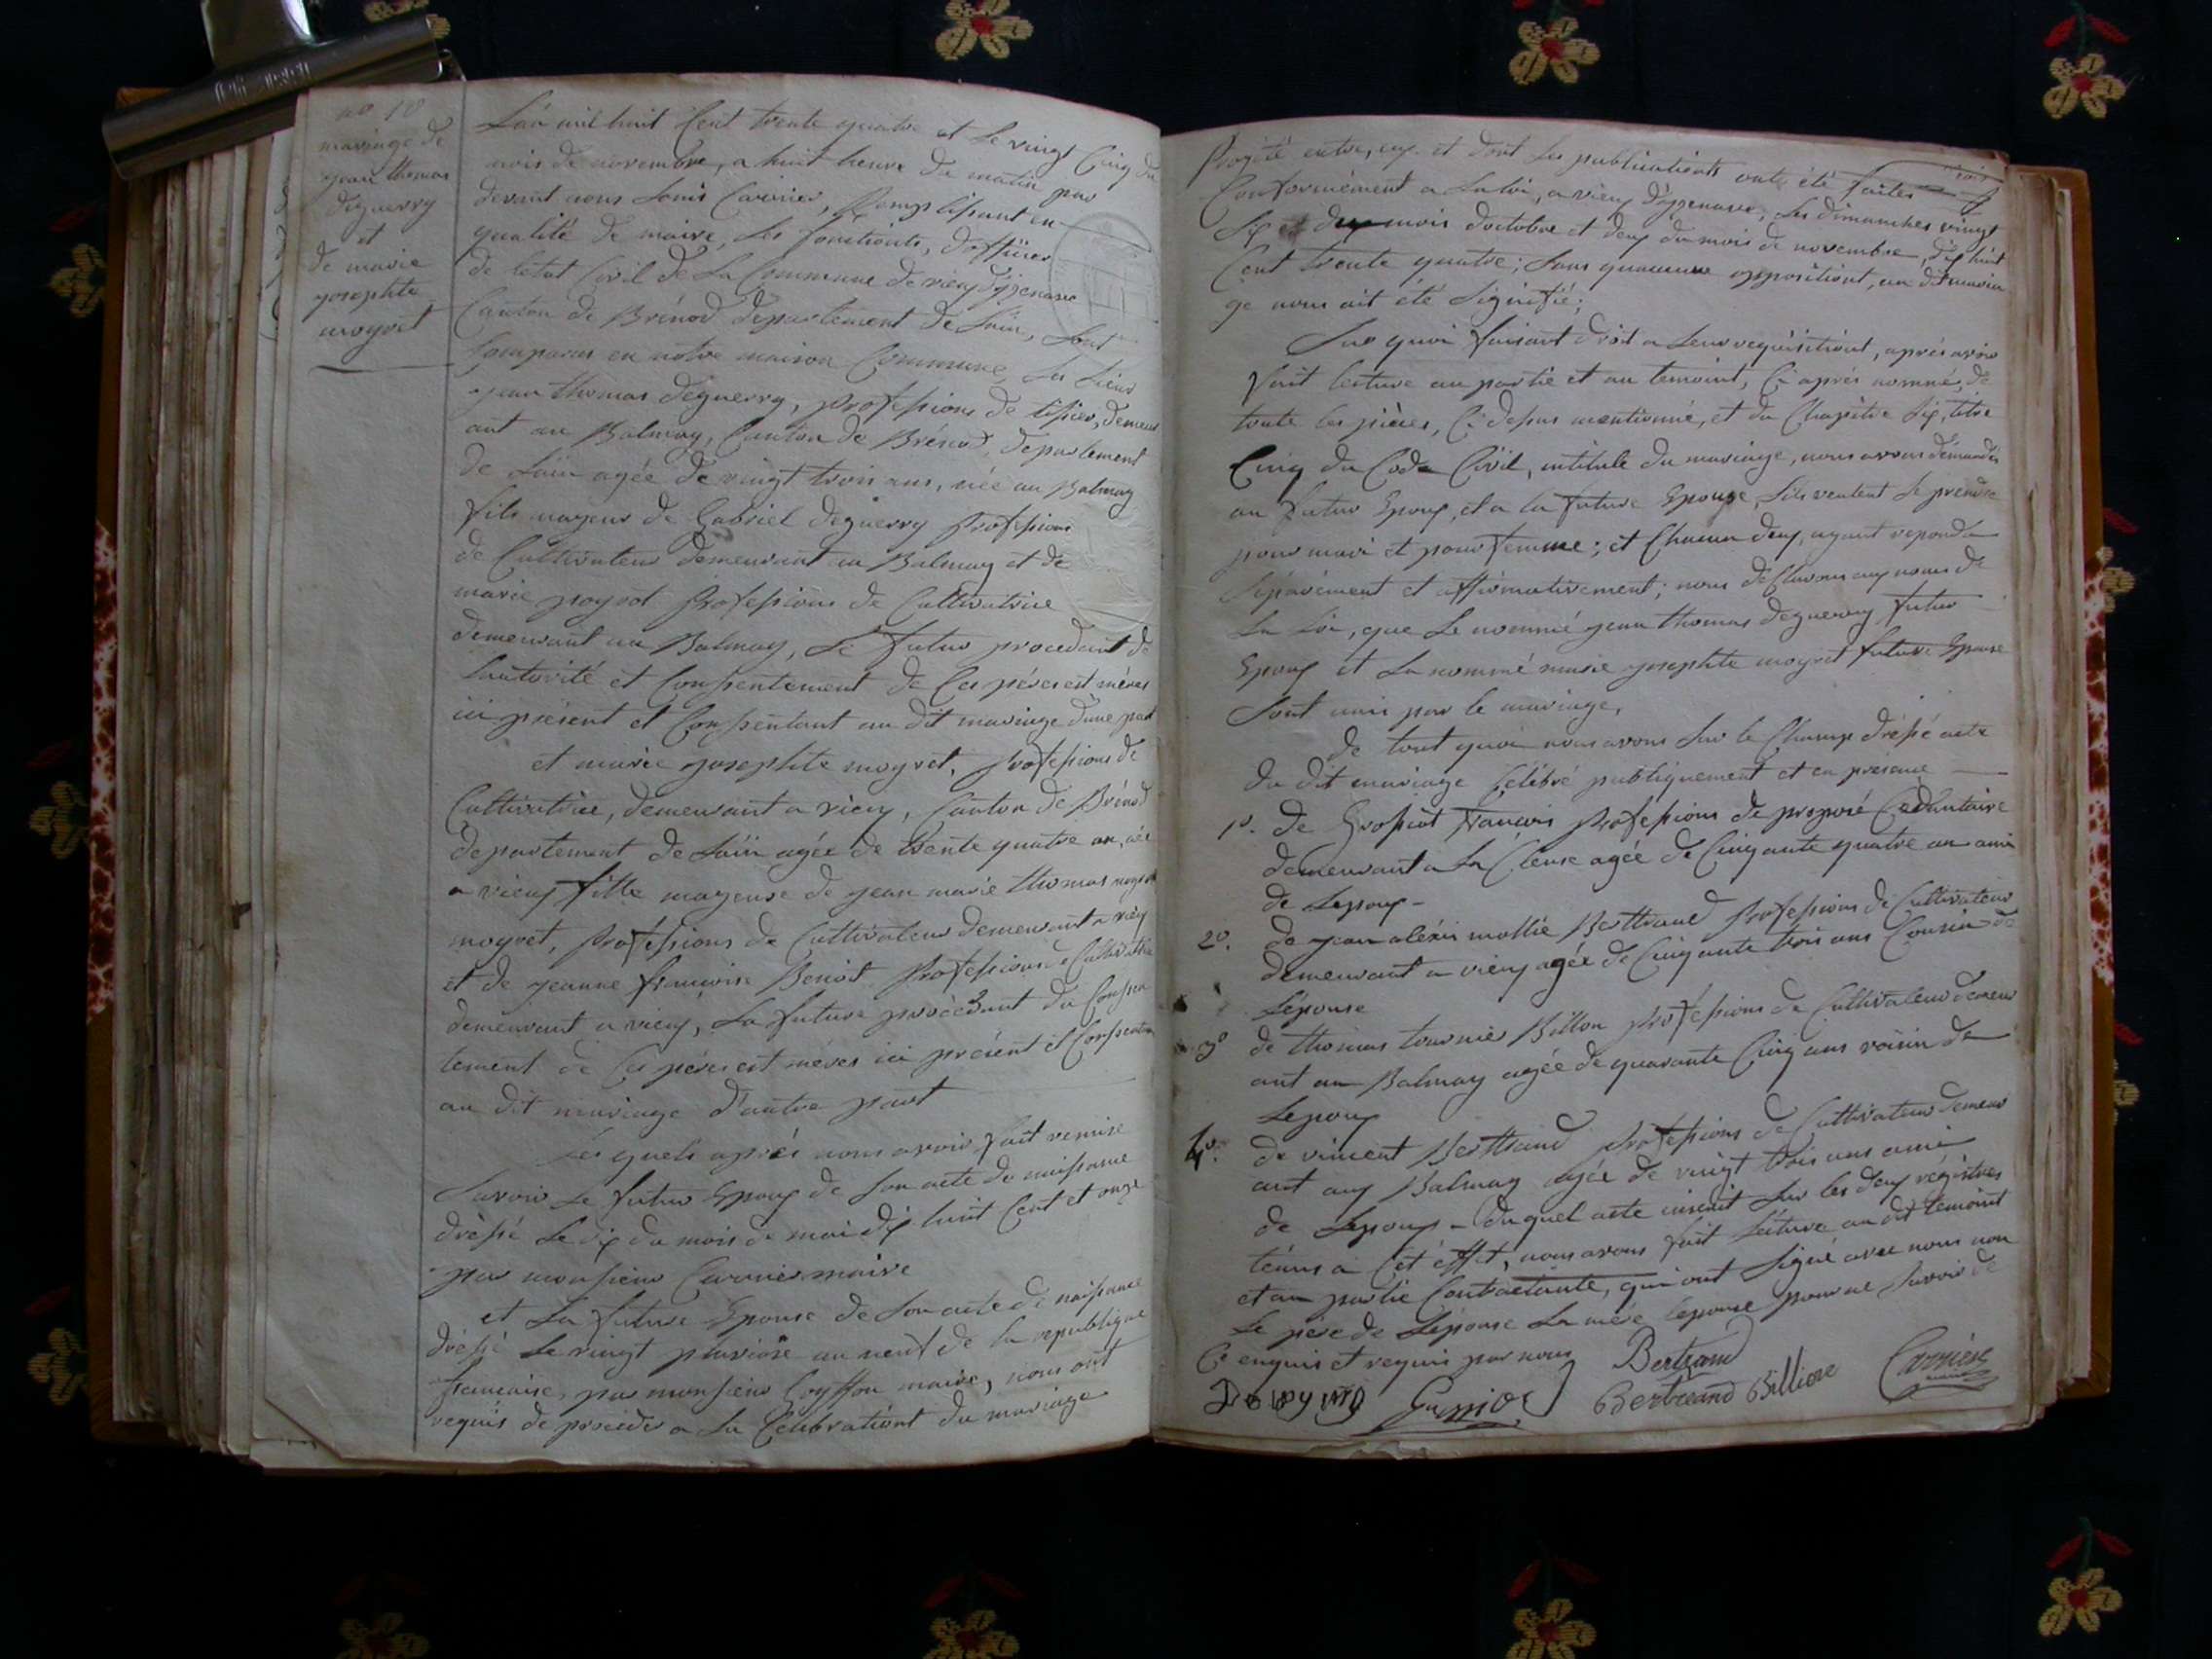 no 10
mariage de
jean thomas
déguerry
et
de marie
josephte
moyret
L'an mil huit Cent trente quatre et le vingt Cinq du
mois de novembre, a huit heure du matin par
devant nous Louis Carrier, Remplissant en
qualité de maire, les fonctionts, d'officier
de letat Civil de la Commune de vieu d'izenave
Canton de Brénod departement de Lain, sont
Comparus en notre maison Commune, les Sieur
jean thomas déguerry, professions de tissier, demeur
ant au Balmay, Canton de Brénod, departement
de Lain agée de vingt trois ans, née au Balmay
fils mayeur de Gabriel deguerry professions
de Cultivateur demeurant au Balmay et de
marie poyret professions de Cultivatrice
demeurant au Balmay, le futur procedant de
Lautorité et Consentement de Ces péres est méres
ici présent et Consentant au dit mariage d'une part
et marie josephte moyret, professions de
Cultivatrice, demeurant a vieu, Canton de Brénod
departement de Lain agée de trente quatre an, née
a vieux fille mayeure de jean marie thomas
moyret, professions de Cultivateur demeurant a vieu
et de jeanne francoise Benoit professions de Cultivatrice
demeurant a vieux, La future procèdant du Consen
tement de Ces péres est méres ici présent et Consentant
au dit mariage d'autre part
Les quels aprés nous avoir fait remise
Savoir le futur Epoux de son acte de naissance
dréssé Le dix du mois de mai dix huit Cent et onze
par monsieur Carrier maire
et La future Epouse de Son acte de naissance
dréssé Le vingt pluviose an neuf de la republique
francaise, par monsieur Goyffon maire, nous ont
requis de procéder a La Célébrationt du mariage
Projété entre, eux et dont les publicationts ont été faites
Conformément a La loi, a vieux d'izzenave, Les dimanches vingt
Six mois doctobre et deux du mois de novembre, dix huit
Cent trente quatre; Sans quaucune oppositiont, au dit maria
ge nous ait été Signifié;
Sur quoi faisant droit a Leur requisitiont, aprés avoir
fait lecture au partie et au temoint, Ci aprés nommé, de
toute les pièces, Ci dessus mentionné, et du Chapitre Six, titre
Cinq du Code Civil, intitule du mariage, nous avons demandés
au futur Epoux, et a la future Epouse, Sils veulent Se prendre
pour mari et pour femme; et Chacun deux, ayant repondu
Séparément et affirmativement; nous déClarons aux noms de
La Loi, que Le nommé jean thomas deguerry futur
Epoux et La nommé marie josephte moyret future Epouse
Sont unis par le mariage,
de tout quoi nous avons Sur le Champ dréssé acte
du dit mariage Célébré publiquement et en présence
1o. de Grossiot francois professions de preposé Cédantaire
demeurant a La Cleuse agée de Cinquante quatre an ami
de Lepoux -
2o. de jean aléxis mollié Berthrand professions de Cultivateur
demeurant a vieux agée de Cinquante trois ans Cousin de
Lépouse
3o de thomas tournier Billon professions de Cultivateur demeur
ant au Balmay agée de quarante Cinq ans voisin de
Lepoux
4o. de vincent Berthrand professions de Cultivateur demeur
ant aux Balmay agée de vingt trois ans ami
de Lepoux - duquel acte inscrit Sur les deux régistres
ténus a Cét éffet, nous avons fait Lécture au dit temoint
et au partie Contractante, qui ont Signé avec nous non
Le pére de Lépouse La mére lepouse pour ne Savoir de
Ce enquis et requis par nous
Bertrand
Carrier
Bertreand Billion